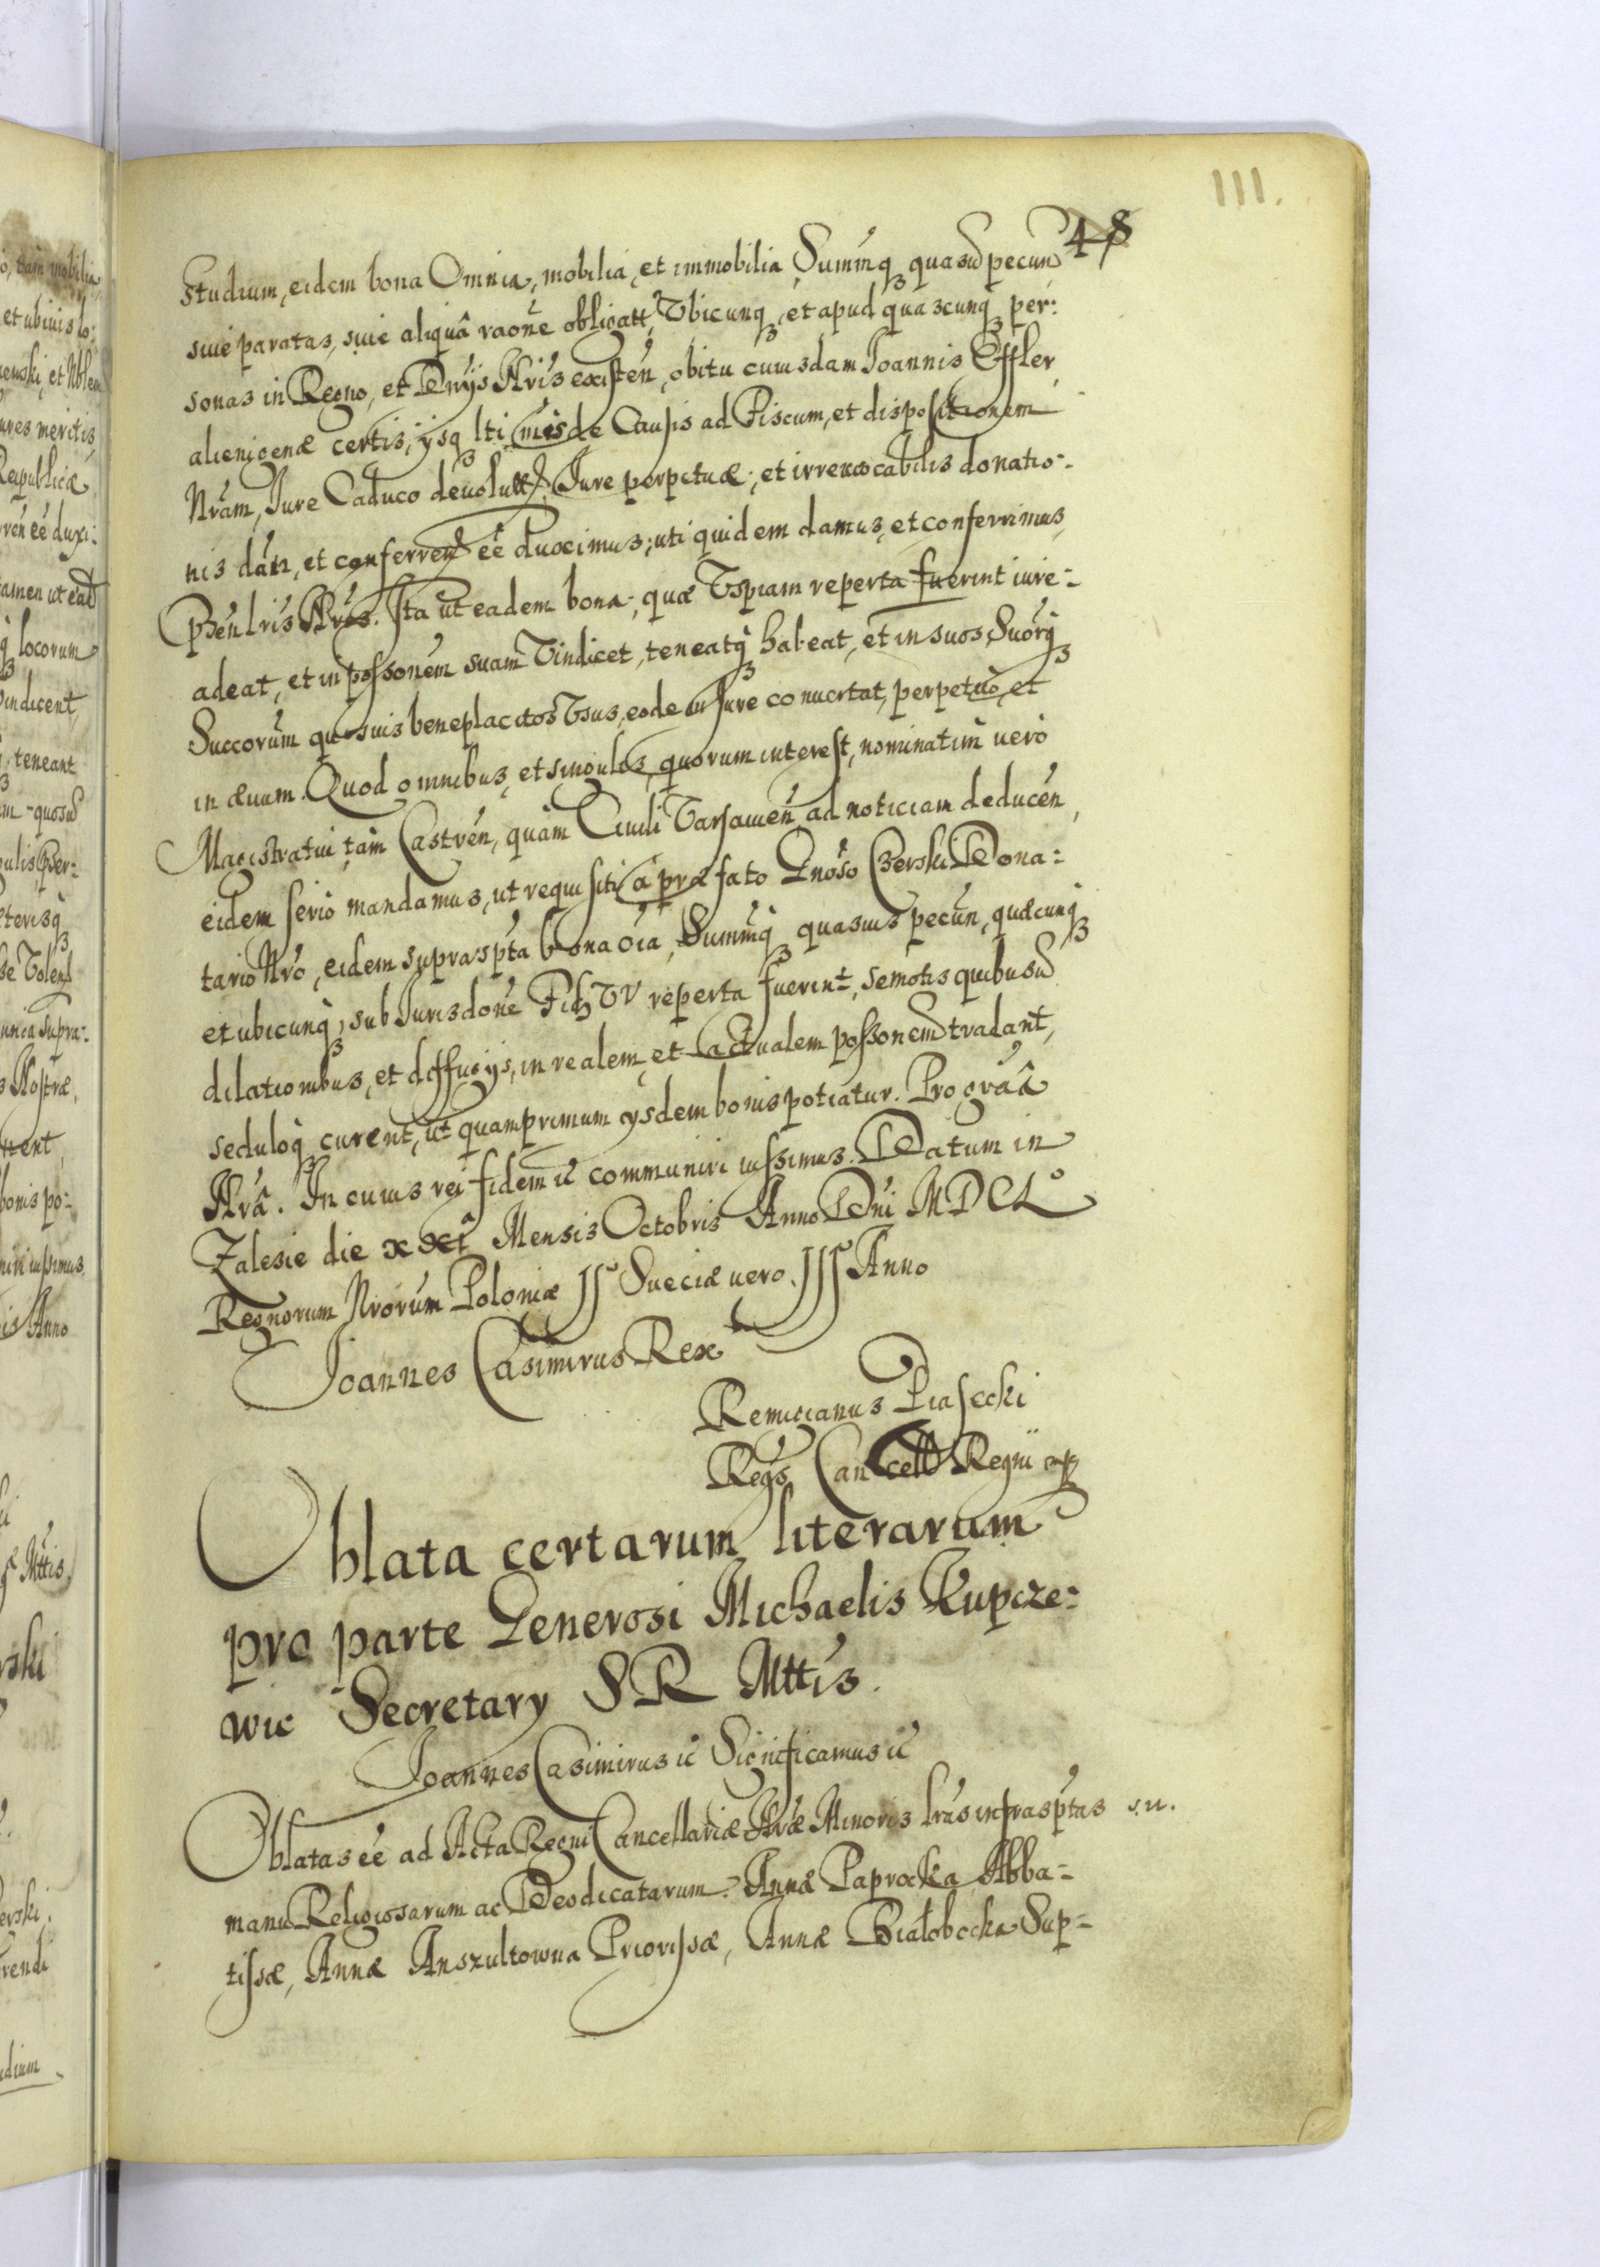 111.
48
studium, eidem bona Omnia, mobilia, et immobilia Summq quasū pecun
siue paratas, siue aliquâ raõne obligatt, Vbicunq, et apud quascunq per:
sonas in Regno, et Dnijs Nris existen, obitu cuiusdam Joannis Effler
alienigenæ certis, ysq ltimis de Causis ad Fiscum, et dispositionem
Nram, Jure Caduco deuolutt, Jure perpetuæ, et irreuocabilis donatio-
nis dan, et conferren eē duximus; uti quidem damus, et conferrimus,
Pñ lris Nris. Ita ut eadem bona, quæ Vspiam reperta fuerint iure-
adeat, et in possonem suam Vindicet, teneatq habeat, et in suos, Suorq
Succorum que suis beneplacitos Vsus, eodem Jure conuertat, perpetuò, et
in æuum. Quod omnibus, et singulis, quorum interest, nominatim uerò
Magistratui tàm Castren, quàm Ciuili Varsauien ad noticiam deducen,
eidem seriò mandamus, ut requisiti à præfato Gnoso Czerski Dona-
tario Nro, eidem suprasṕta bona oīa, Summq quasuis pecun, quæcunq
et ubicunq, sub Jurisdone Fid VV reperta fuerint, semotis quibusū
dilationibus, et diffugys, in realem, et actualem possonem tradant,
seduloq curent, ut quamprimum ysdem bonis potiatur. Pro grãâ
Nrâ. In cuius rei fidem ic communiri iussimus. Datum in
Zalesie die xxta Mensis Octobris Anno Dni MDCLo
Regnorum Nrorum Poloniæ II Sueciæ uero III Anno
Joannes Casimirus Rex
Remigianus Piasecki
Regs Cancell Regni mp
Oblata certarum literarum
pro parte Generosi Michaelis Kupcze-
wic Secretary SR Mttis.
Joannes Casimirus ic Significamus ic
Oblatas eē ad Acta Regni Cancellariæ Nræ Minoris lras infrasṕtas s.n.
manu Religiosarum ac Deodicatarum. Annæ Paprocka Abba-
tissæ, Annæ Anszultowna Priorissæ, Annæ Białobocka Sup-